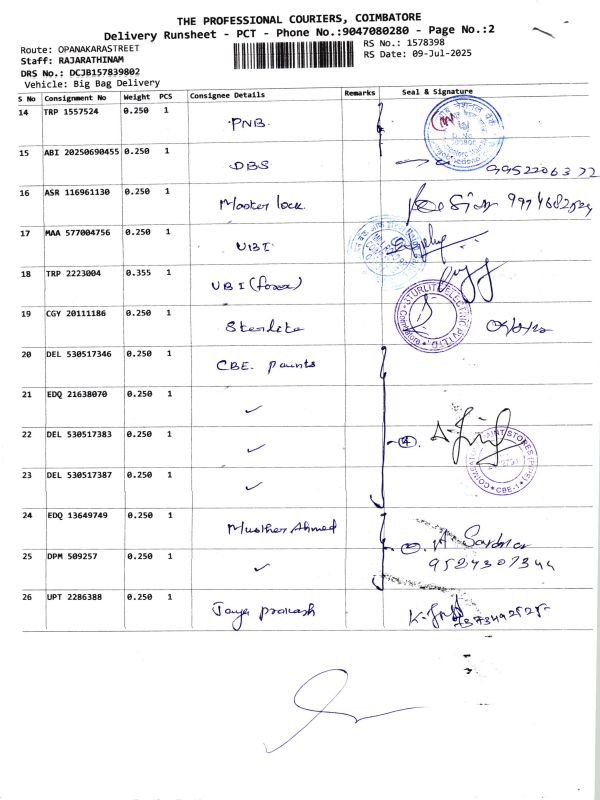 THE PROFESSIONAL COURIERS, COIMBATORE
Delivery Runsheet - PCT - Phone No.:9047080280 - Page No.:2
Route: OPANAKARASTREET
RS No.: 1578398
Staff: RAJARATHINAM
RS Date: 09-Jul-2025
DRS No.: DCJB157839802
Vehicle: Big Bag Delivery
S No Consignment No Weight PCS Consignee Details Remarks Seal & Signature
14 TRP 1557524 0.250 1 PNB
15 ABI 20250690455 0.250 1 DBS
16 ASR 116961130 0.250 1 Master lock
17 MAA 577004756 0.250 1 UBI
18 TRP 2223004 0.355 1 UBI (forex)
19 CGY 20111186 0.250 1
STURLITE ELECTRIC (P) LTD.
20 DEL 530517346 0.250 1 CBE. paints
21 EDQ 21638070 0.250 1 ✓
22 DEL 530517383 0.250 1 ✓ 4
23 DEL 530517387 0.250 1 ✓
PAINT STORES CBE-1
24 EDQ 13649749 0.250 1 Musther Ahmed
25 DPM 509257 0.250 1 ✓ 2
9524307344
26 UPT 2286388 0.250 1 Jaya prakash